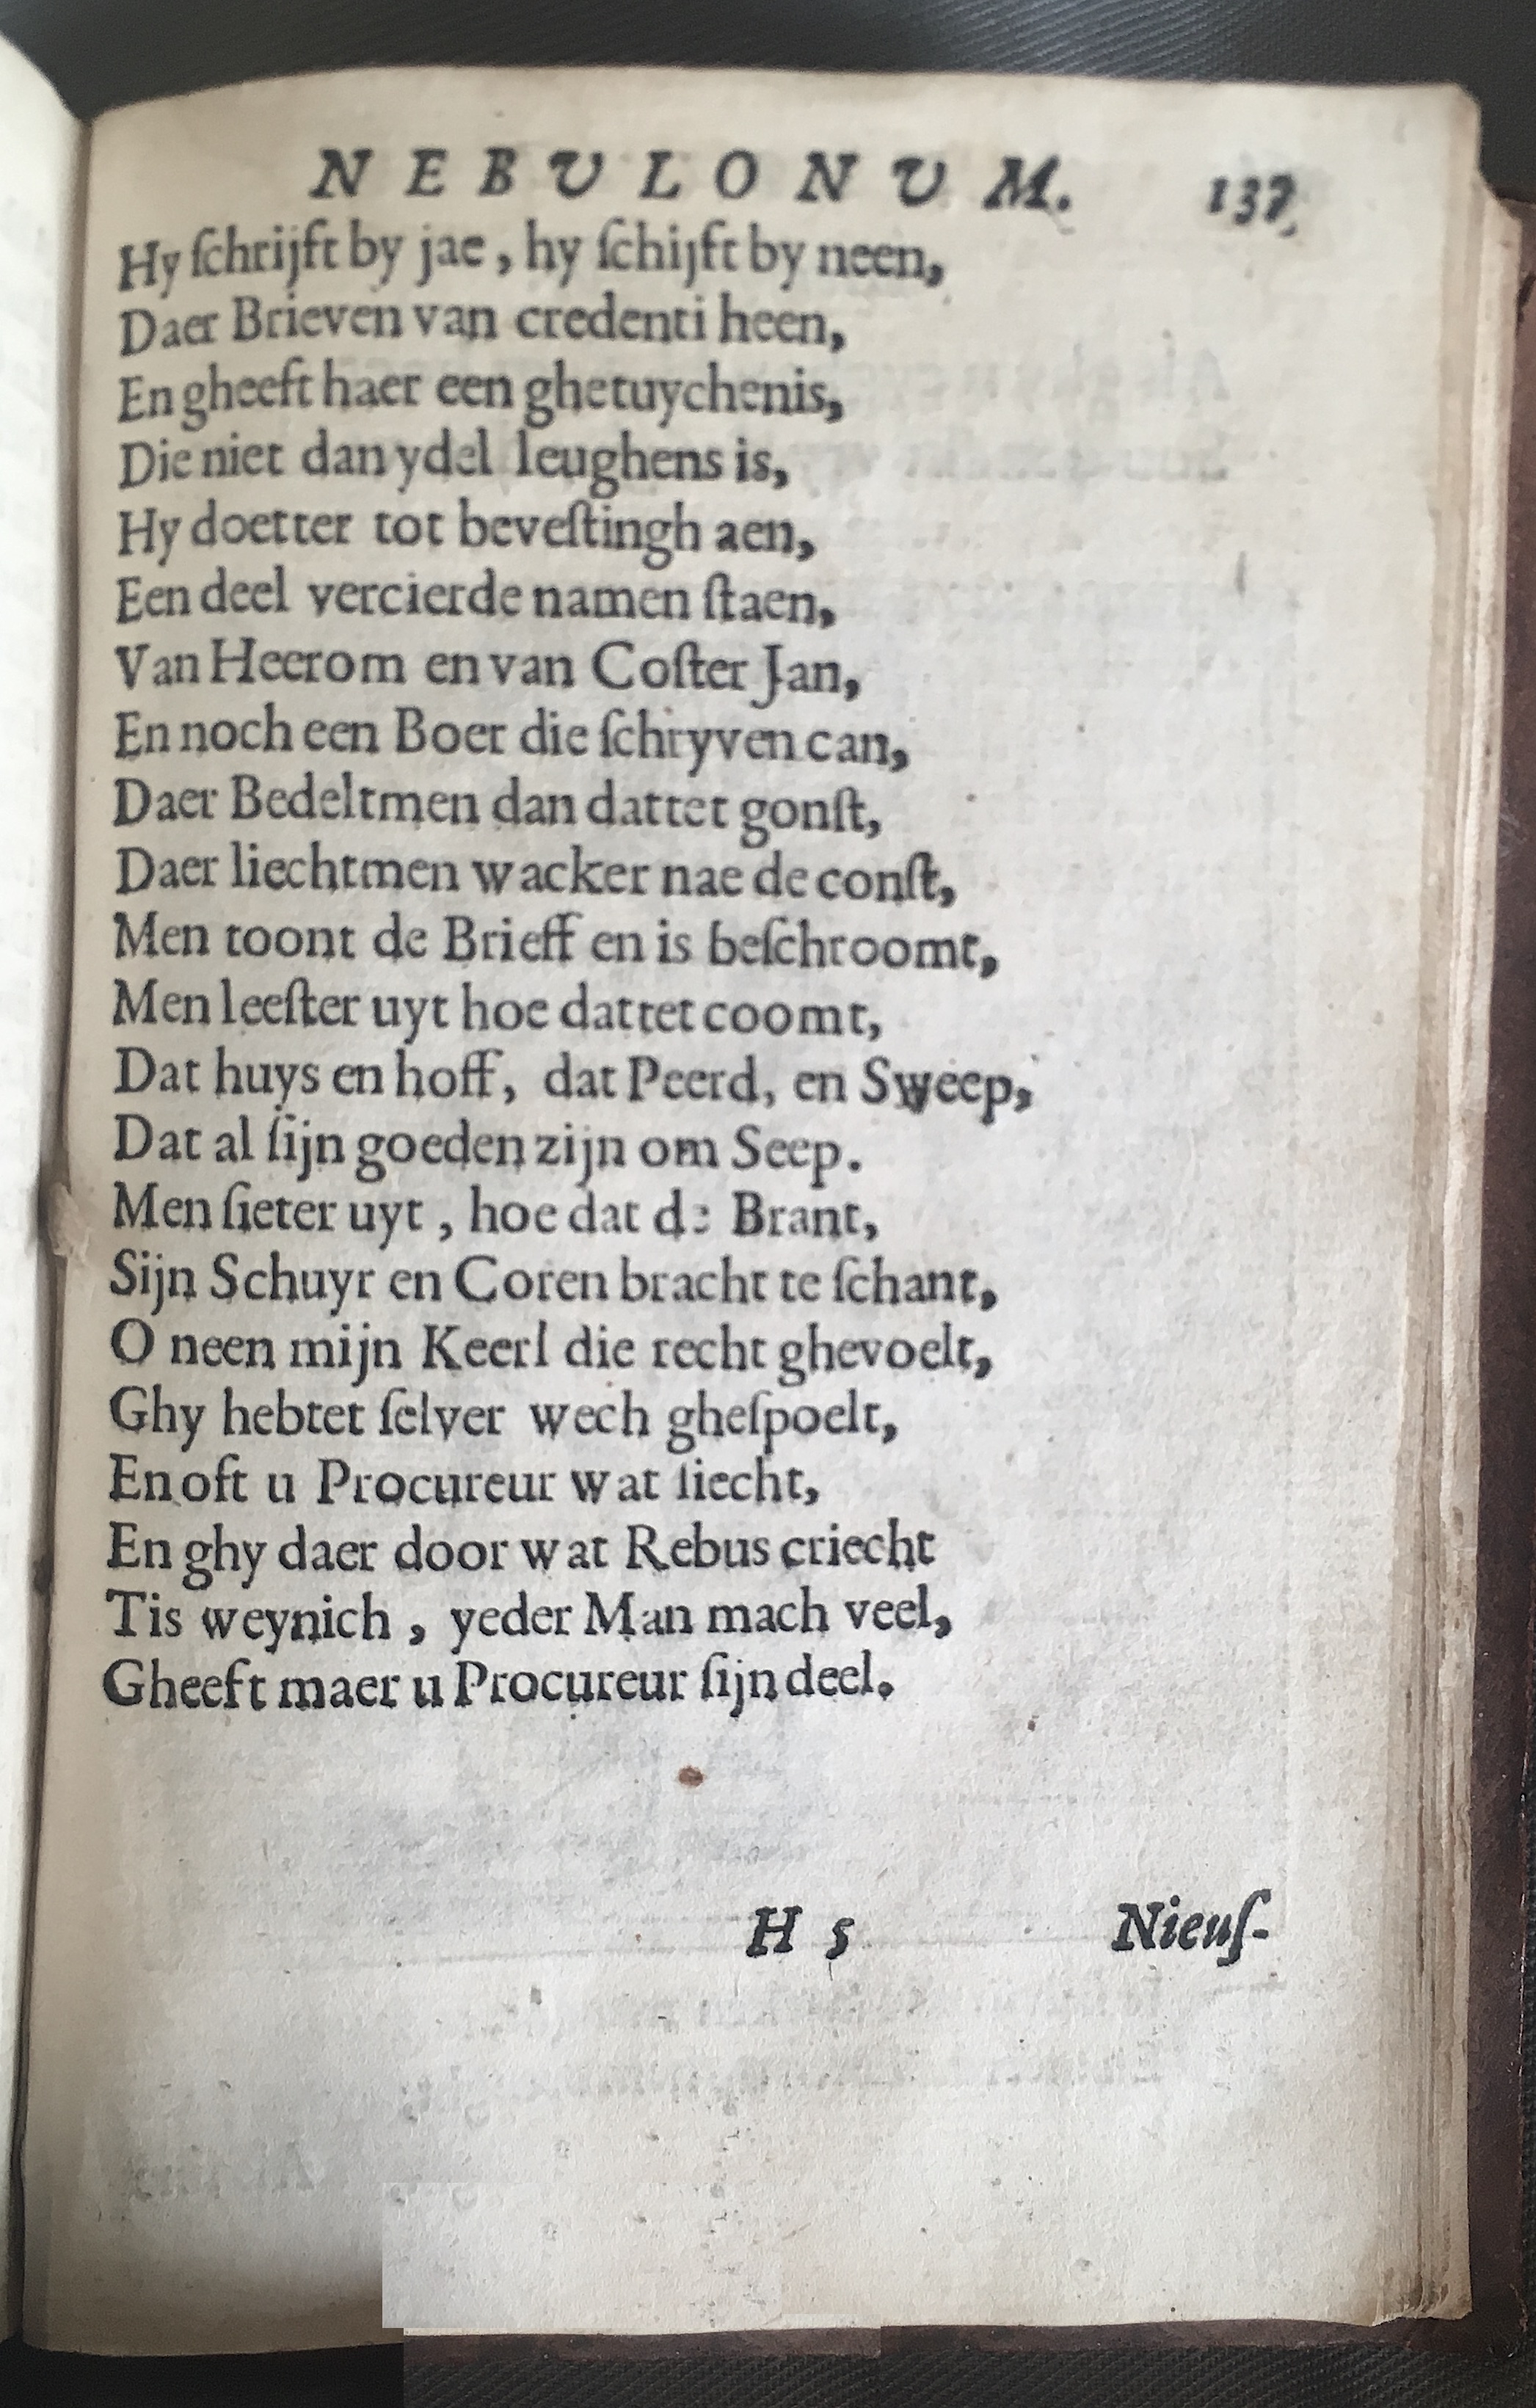 NEBULONUM. 137
Hy ſchrijft by jae, hy ſchijft by neen,
Daer Brieven van credenti heen,
En gheeft haer een ghetuychenis,
Die niet dan ydel leughens is,
Hy doetter tot beveſtingh aen,
Een deel vercierde namen ſtaen,
Van Heerom en van Coſter Jan,
En noch een Boer die ſchryven can,
Daer Bedeltmen dan dattet gonſt,
Daer liechtmen wacker nae de conſt,
Men toont de Brieff en is beſchroomt,
Men leeſter uyt hoe dattet coomt,
Dat huys en hoff, dat Peerd, en Sweep,
Dat al ſijn goeden zijn om Seep.
Men ſieter uyt, hoe dat de Brant,
Sijn Schuyr en Coren bracht te ſchant,
O neen mijn Keerl die recht ghevoelt,
Ghy hebtet ſelver wech gheſpoelt,
En oft u Procureur wat liecht,
En ghy daer door wat Rebus criecht
Tis weynich, yeder Man mach veel,
Gheeft maer u Procureur ſijn deel.
H 5 Nieuſ-